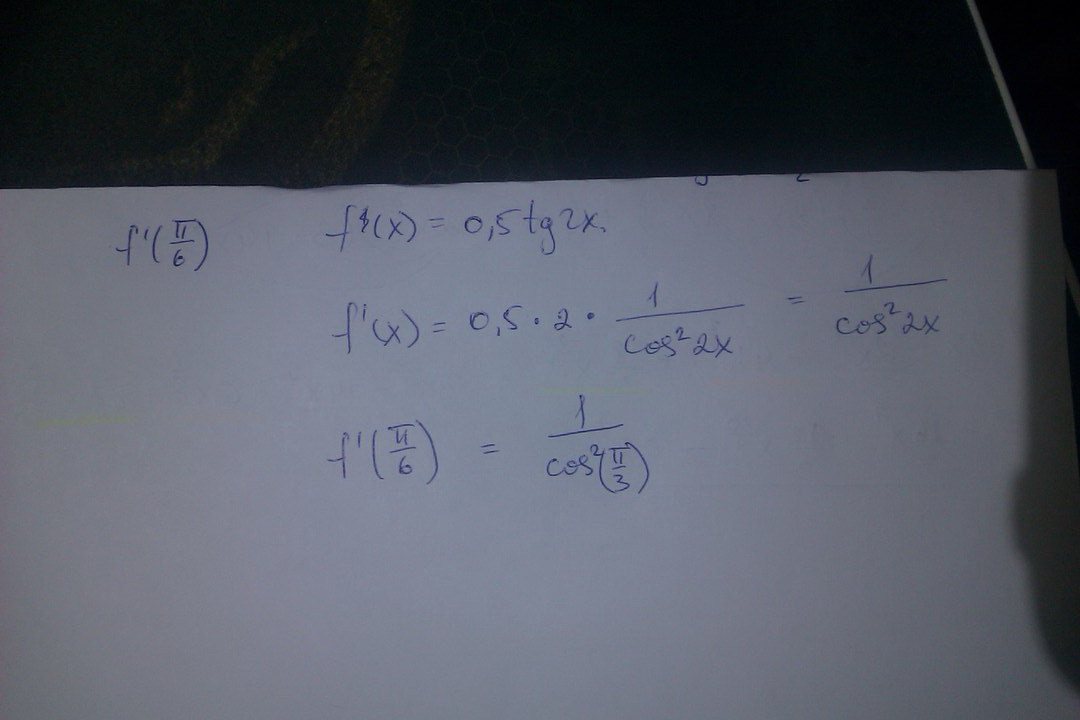 f'(π/6) f(x) = 0,5 tg 2x.
f'(x) = 0,5 · 2 · 1/cos²2x = 1/cos²2x
f'(π/6) = 1/cos²(π/3)